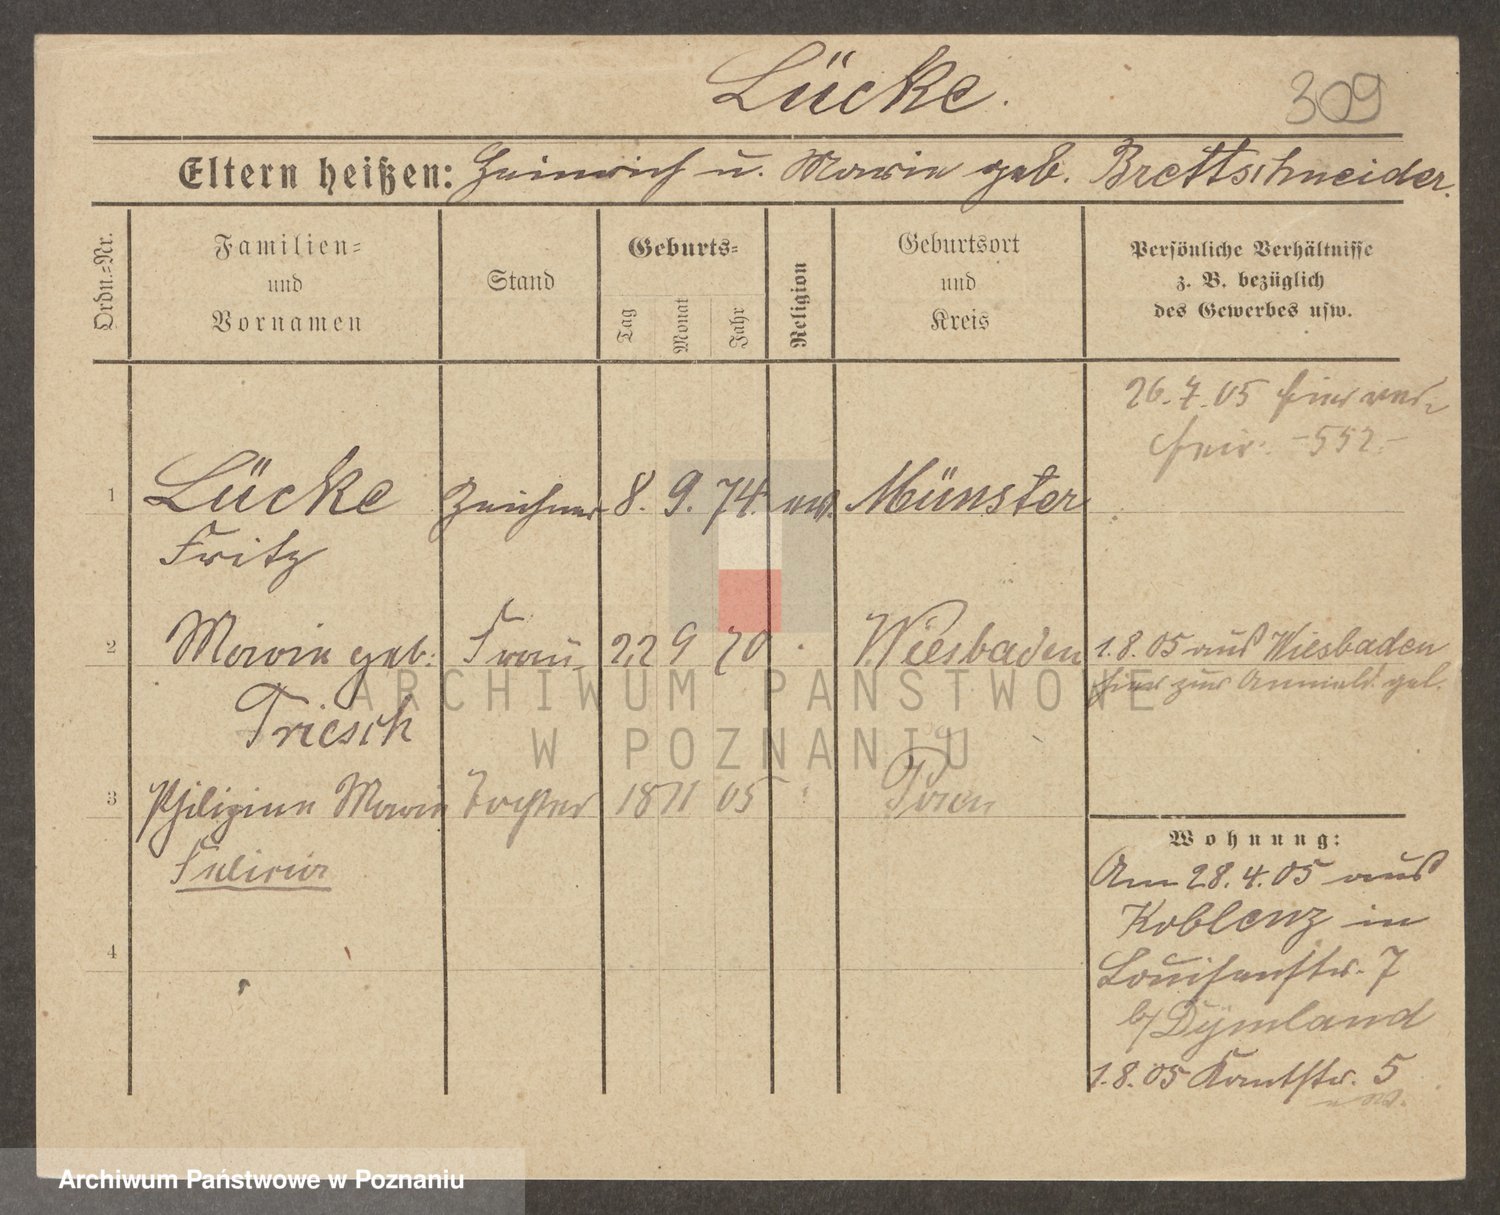 Lücke.
309
Eltern heißen: Heinrich u. Marie geb. Brettschneider.
Ordn.=Nr.
Familien=
und
Vornamen
Stand
Geburts=
Tag
Monat
Jahr
Religion
Geburtsort
und
Kreis
Persönliche Verhältnisse
z. B. bezüglich
des Gewerbes usw.
26.7.05 hier ver=
heir. -552.-
1 Lücke Zeichner 8. 9. 74. ev. Münster
Fritz
2 Marie geb. Frau 22 9 70 Wiesbaden 1.8.05 aus Wiesbaden
hier zur Anmeld. gel.
Triesch
3 Philippine Marie Tochter 18 11 05 Posen
Felicia
4
Wohnung:
Am 28.4.05 aus
Koblenz in
Louisenstr. 7
b/ Dymland
1.8.05 Kantstr. 5
ARCHIWUM PAŃSTWOWE
W POZNANIU
Archiwum Państwowe w Poznaniu